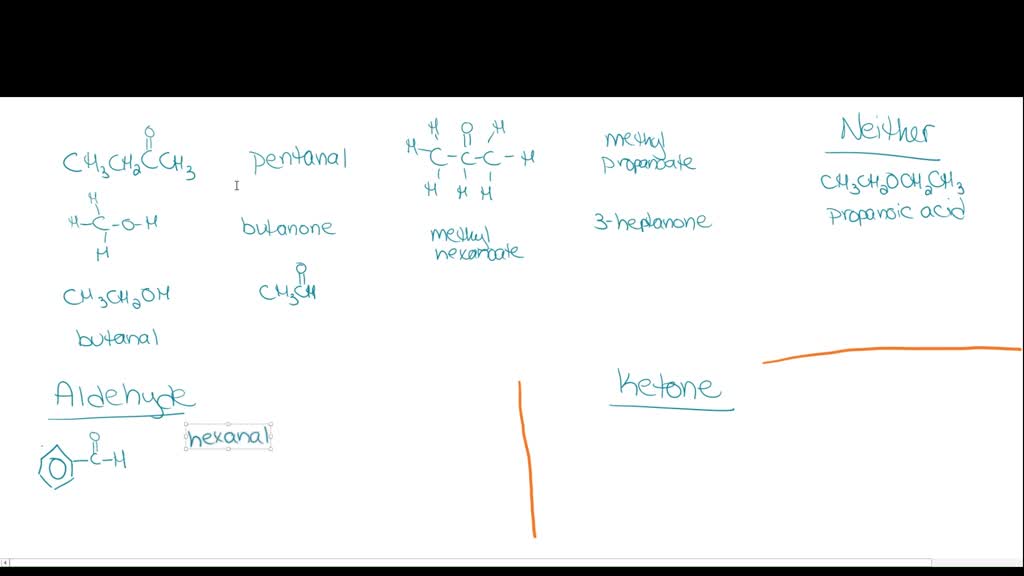 O
CH₃CH₂CCH₃
pentanal
H O H
H-C-C-C-H
H H H
methyl
propanoate
Neither
CH₃CH₂OCH₂CH₃
propanoic acid
H
H-C-O-H
H
butanone
methyl
hexanoate
3-heptanone
CH₃CH₂OH
O
CH₃CH
butanal
Aldehyde
O
C-H
hexanal
Ketone